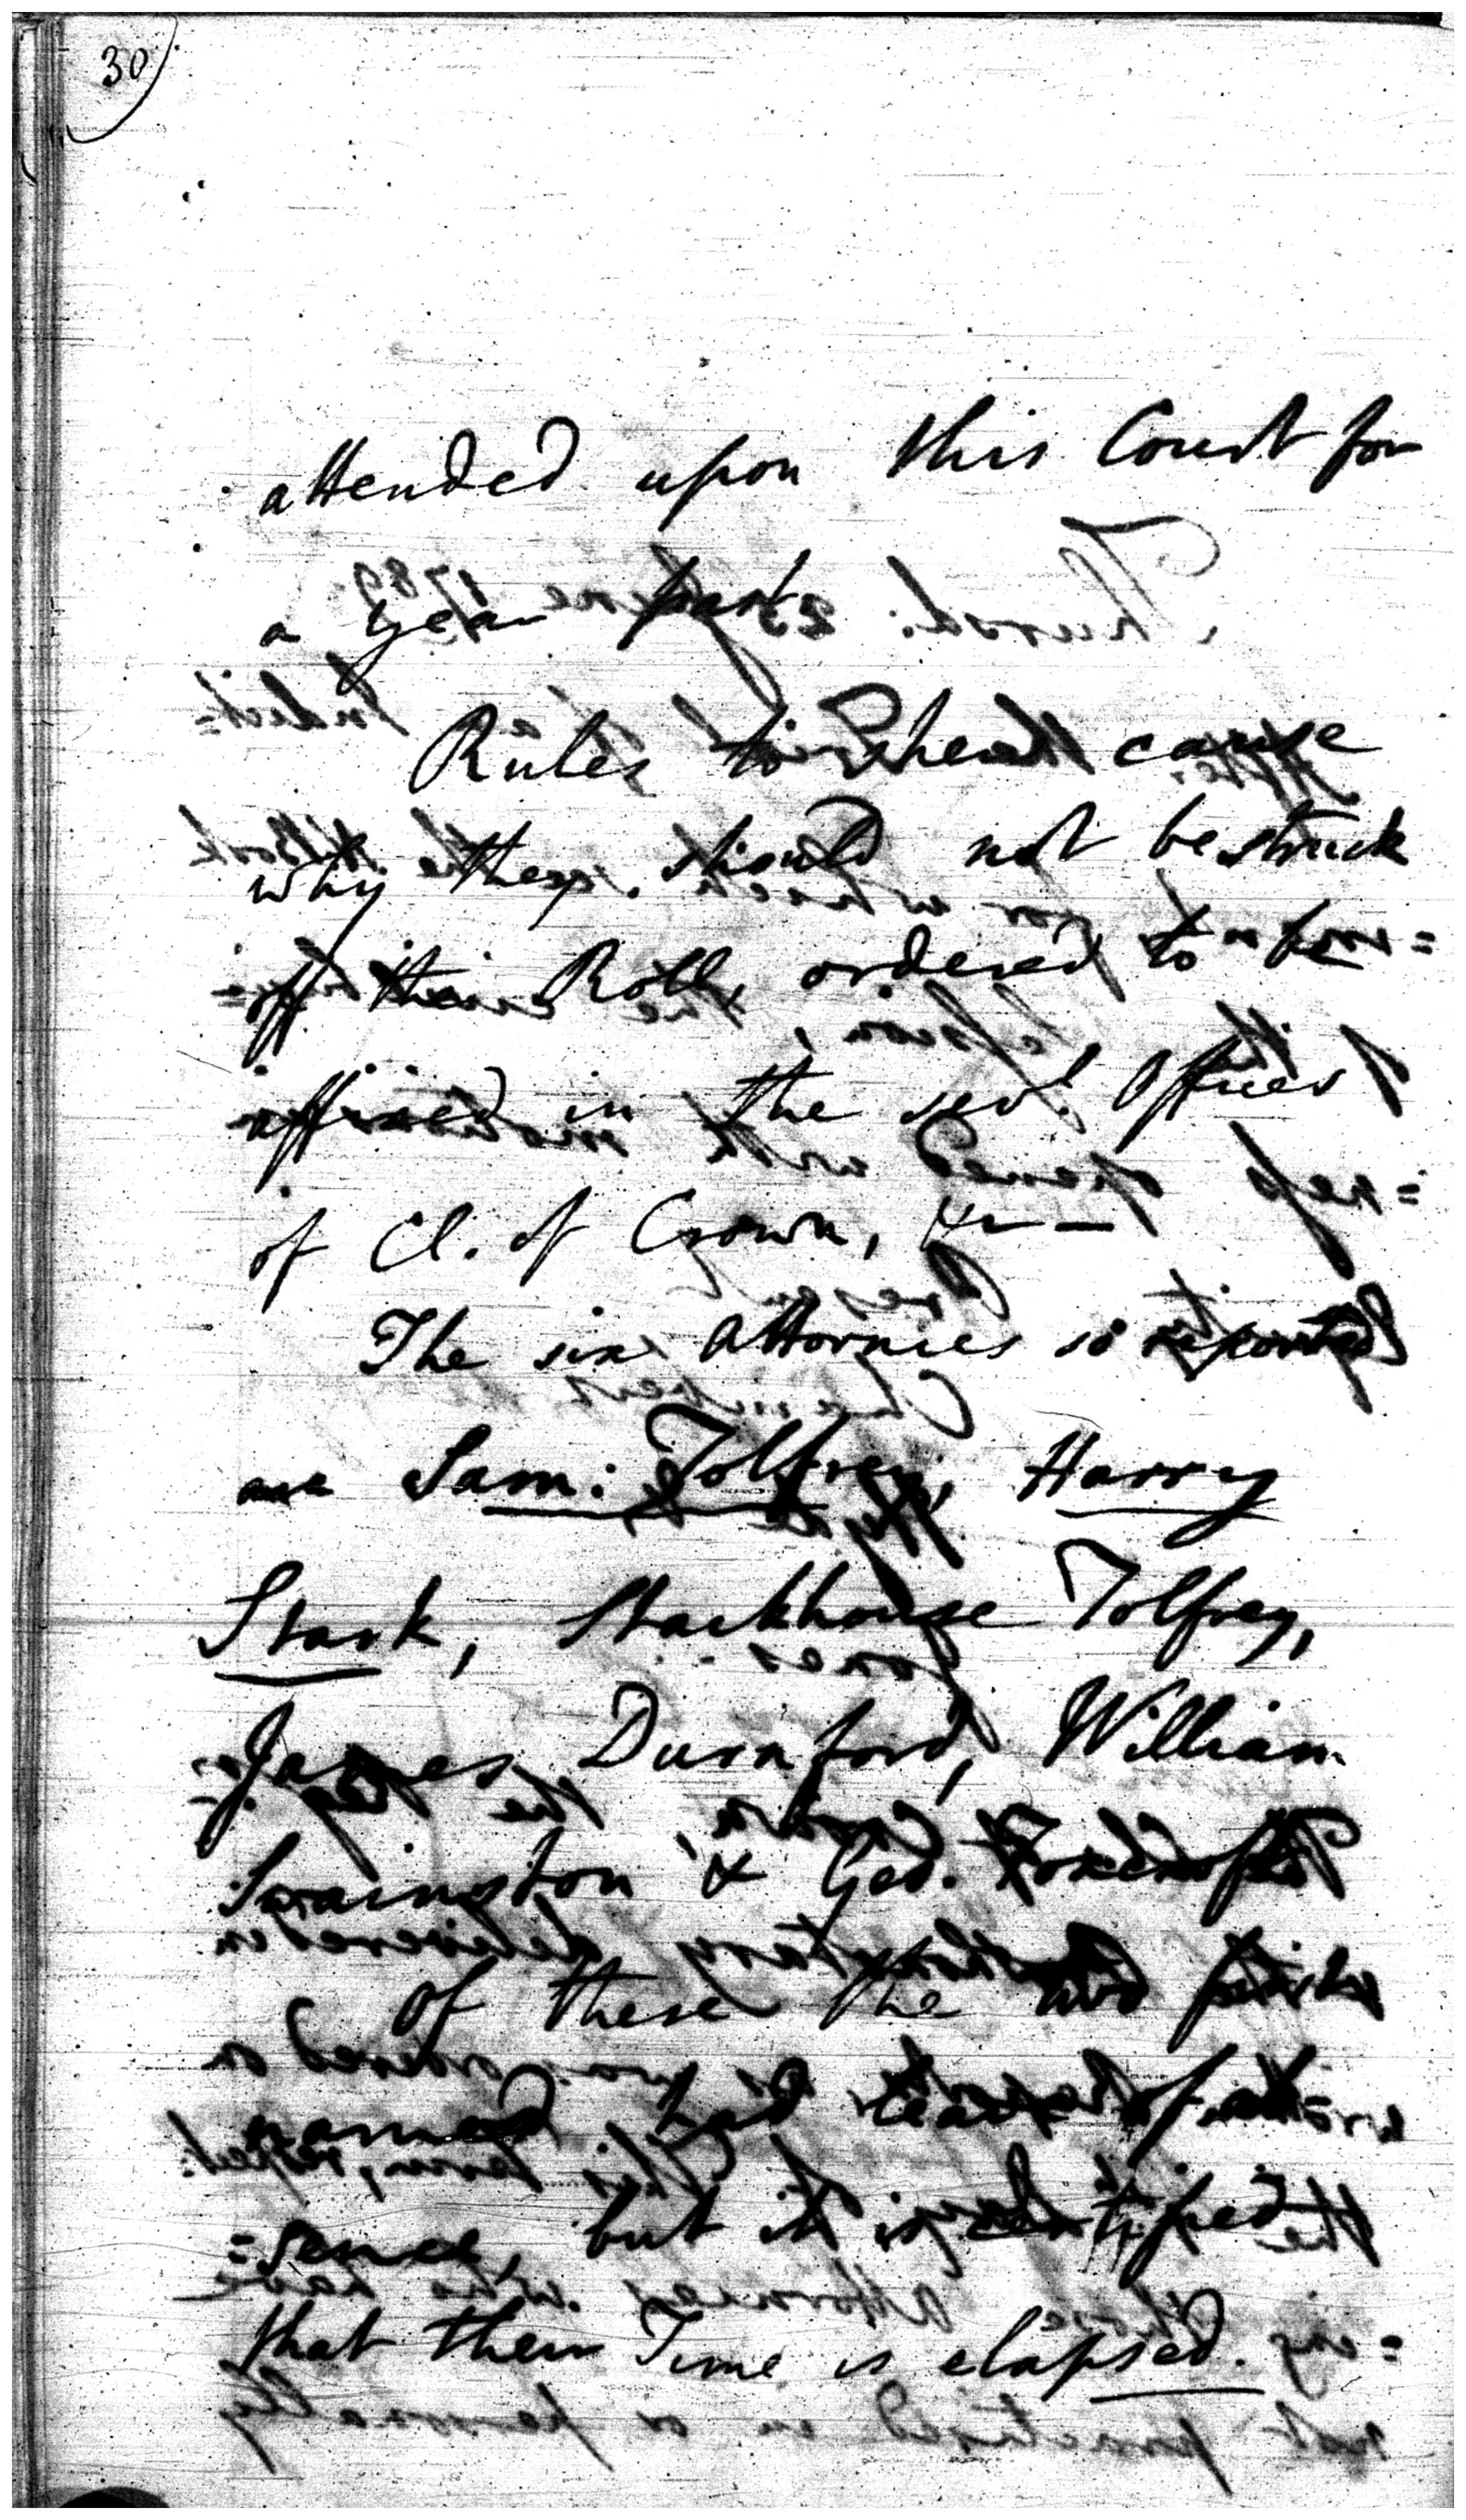 30
attended upon this Court for
a year past.
Rules to shew cause
why they should not be struck
off the Roll, ordered to be
affixed in the sev.l Offices
of Cl. of Crown, &c —
The six Attornies so reported
are Sam: Tolfrey, Harry
Stark, Stackhouse Tolfrey,
James Durnford, William
Swainston & Geo.
Of these the two first
named had leave of ab
=sence, but it is certified
that their Time is elapsed.